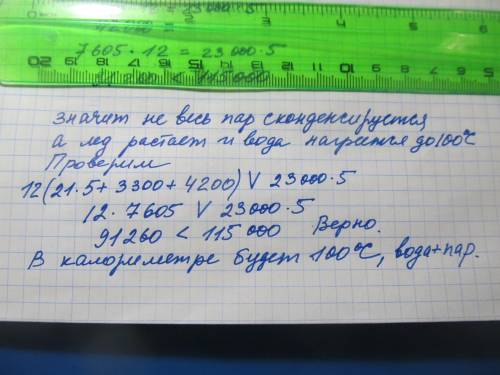 7605 · 12 = 23 000 · 5
значит не весь пар сконденсируется,
а лед растает и вода нагреется до 100°C
Проверим
12(21·5 + 3300 + 4200) V 23000·5
12 · 7605 V 23000·5
91260 < 115000 Верно.
В калориметре будет 100°C, вода+пар.